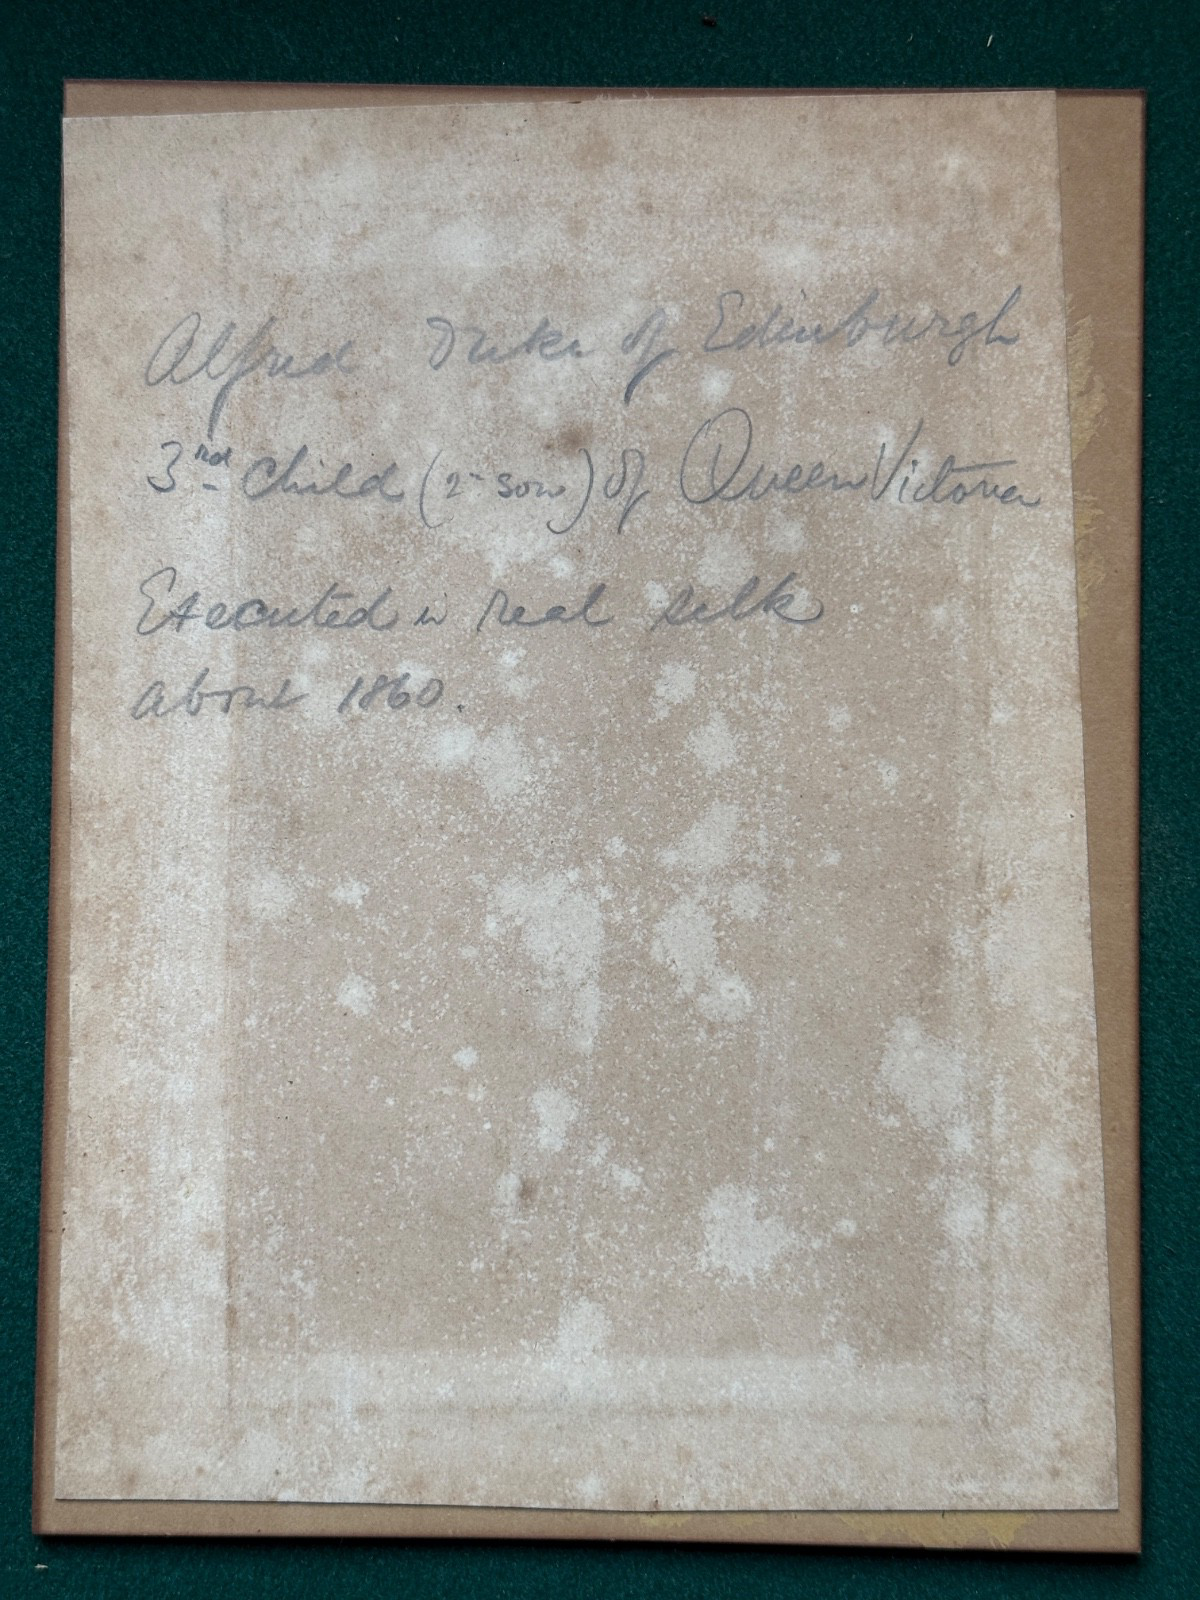 Alfred Duke of Edinburgh
3rd child (2 son) of Queen Victoria
Executed in real silk
about 1860.